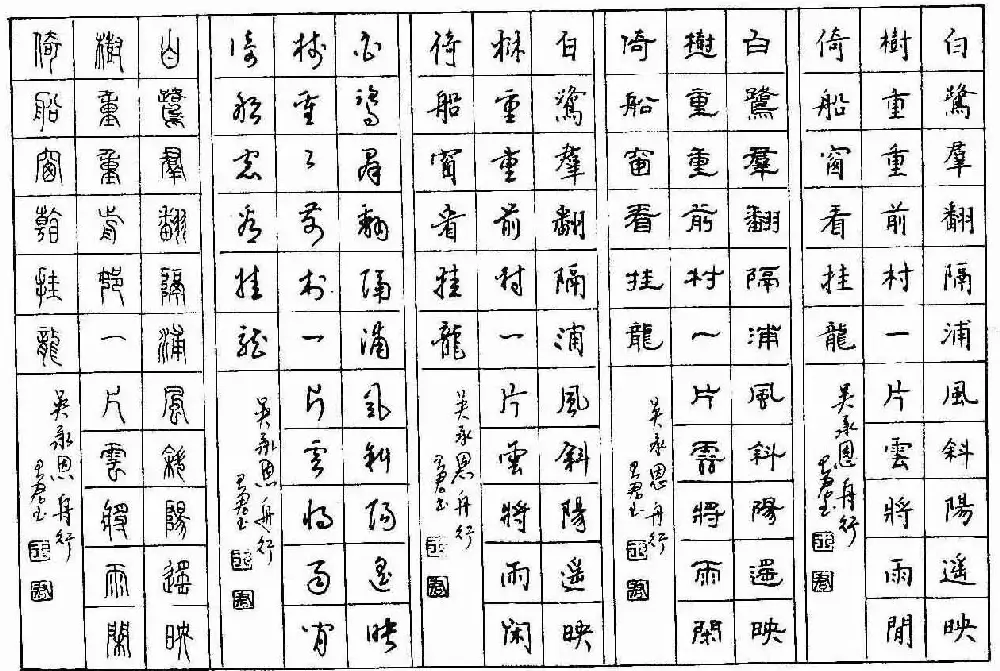 白鷺羣翻隔浦風斜陽遥映
樹重重前村一片雲將雨閒
倚船窗看挂龍
吴承恩舟行
白鷺羣翻隔浦風斜陽遥映
樹重重前村一片雲將雨閑
倚船窗看挂龍
吴承恩舟行
白鷺羣翻隔浦風斜陽遥映
樹重重前村一片雲將雨閑
倚船窗看挂龍
吴承恩舟行
白鷺羣翻隔浦風斜陽遥映
樹重〻前村一片雲將雨閒
倚船窗看挂龍
吴承恩舟行
白鷺羣翻隔浦風斜陽遥映
樹重重前村一片雲將雨閑
倚船窗看挂龍
吴承恩舟行